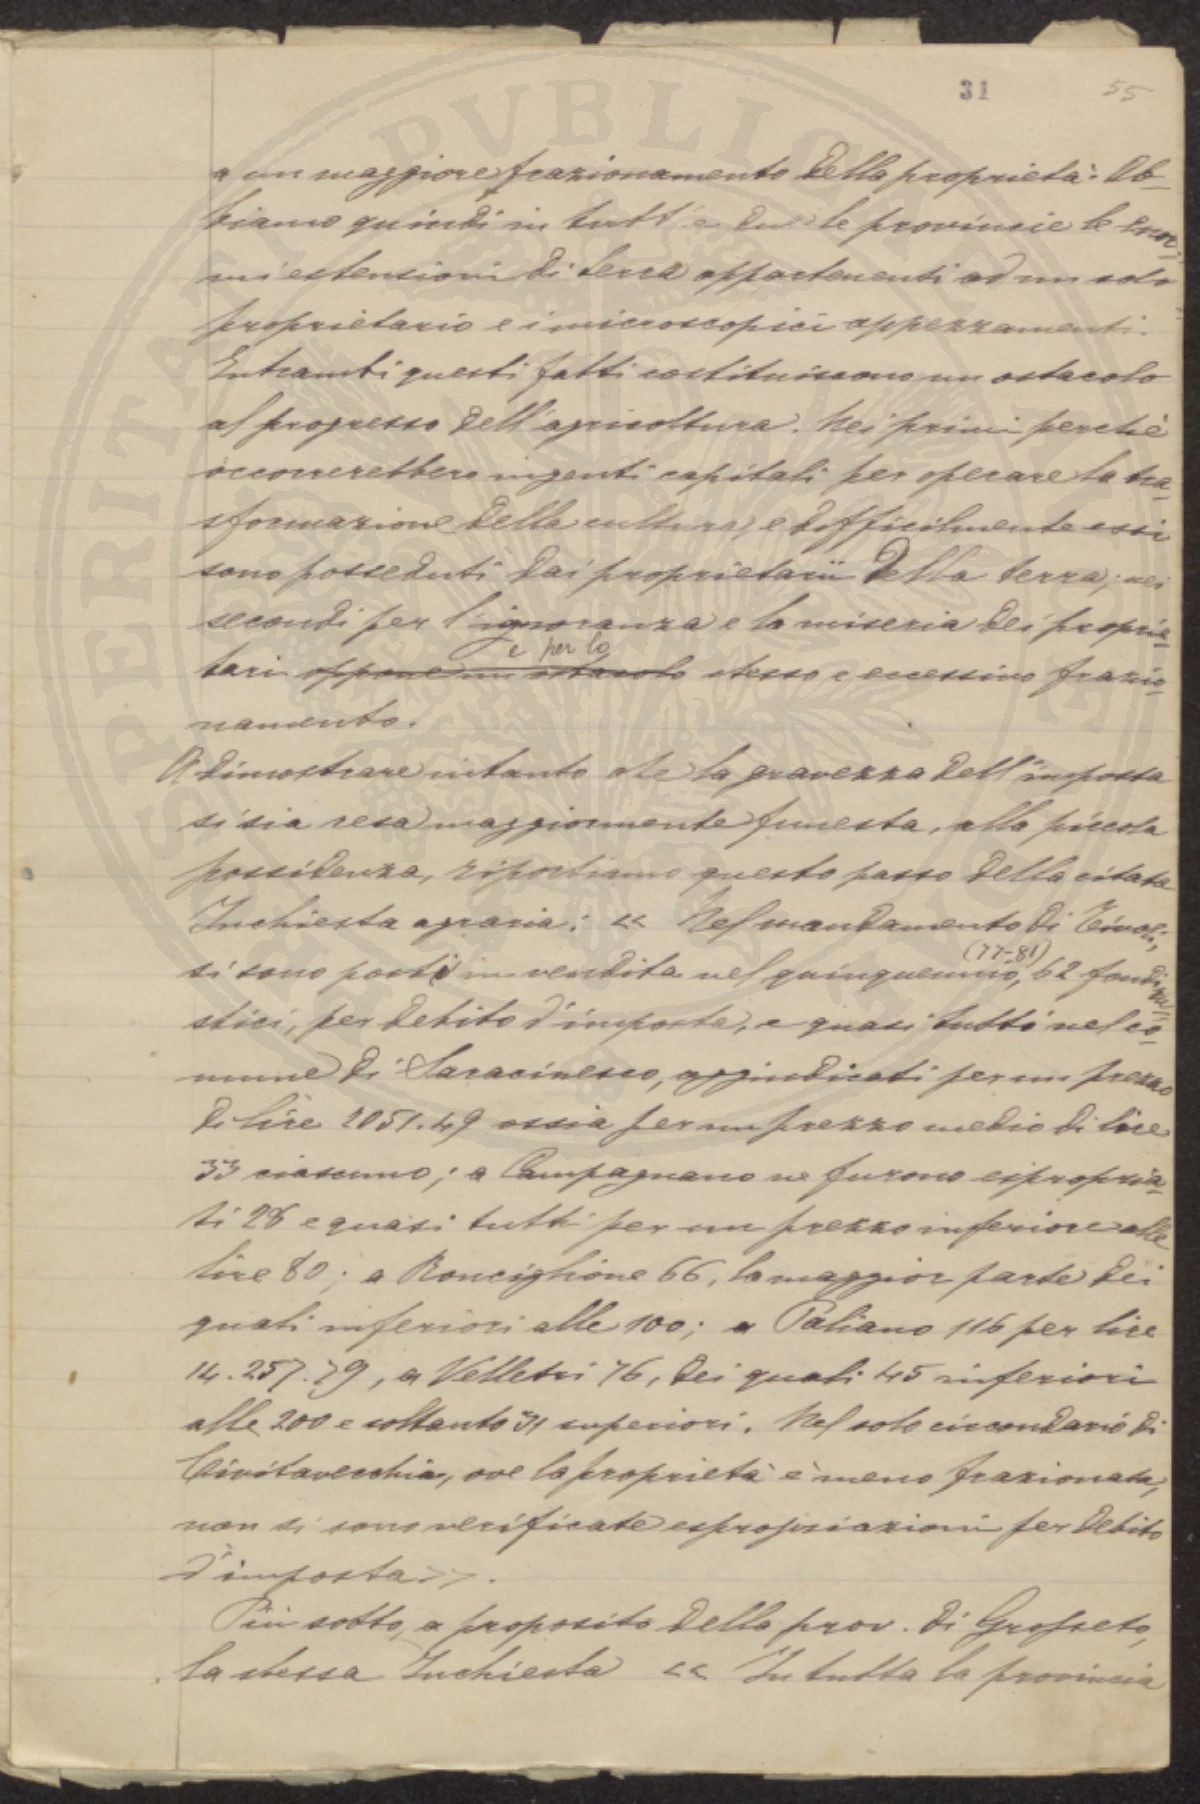 31 55
a un maggiore frazionamento della proprietà. Ab-
biamo quindi in tutt'e due le provincie le enor-
mi estensioni di terra appartenenti ad un solo
proprietario e i microscopici appezzamenti.
Entrambi questi fatti costituiscono un ostacolo
al progresso dell'agricoltura. Nei primi perchè
occorrerebbero ingenti capitali per operare la tra-
sformazione della cultura, e difficilmente essi
sono posseduti dai proprietarii della terra; nei
secondi per l'ignoranza e la miseria dei proprie-
e per lo
tari oppone un ostacolo stesso e eccessivo frazio-
namento.
A dimostrare intanto che la gravezza dell'imposta
si sia resa maggiormente funesta, alla piccola
possidenza, riportiamo questo passo della citata
Inchiesta agraria: << Nel mandamento di Tivoli,
(77-81)
si sono posti in vendita nel quinquennio, 62 fondi ru-
stici, per debito d'imposta, e quasi tutti nel co-
mune di Saracinesco, aggiudicati per un prezzo
di lire 2051.49 ossia per un prezzo medio di lire
33 ciascuno; a Campagnano ne furono espropria-
ti 28 e quasi tutti per un prezzo inferiore alle
lire 80; a Ronciglione 66, la maggior parte dei
quali inferiori alle 100; a Paliano 116 per lire
14.257.79, a Velletri 76, dei quali 45 inferiori
alle 200 e soltanto 31 superiori. Nel solo circondario di
Civitavecchia, ove la proprietà è meno frazionata,
non si sono verificate espropriazioni per debito
d'imposta>>.
Più sotto, a proposito della prov. di Grosseto,
la stessa Inchiesta << In tutta la provincia
ASPERITATE PVBLICAE